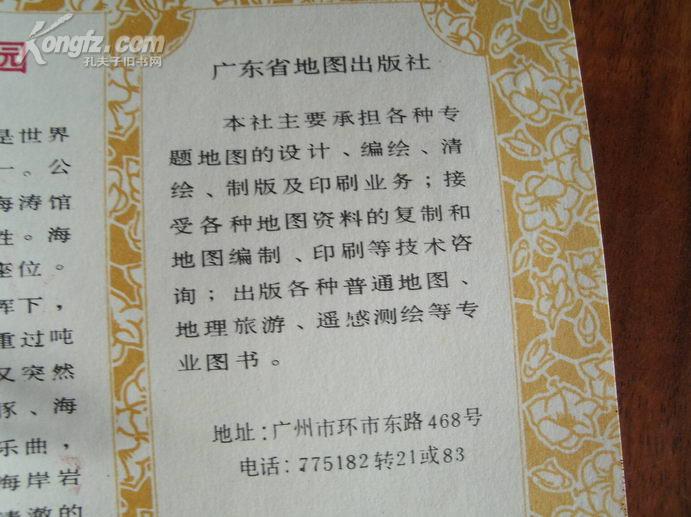 Kongfz.com
孔夫子旧书网
园
是世界
一。公
海涛馆
性。海
座位。
挥下，
重过吨
又突然
豚、海
乐曲，
海岸岩
清澈的
广东省地图出版社
本社主要承担各种专
题地图的设计、编绘、清
绘、制版及印刷业务；接
受各种地图资料的复制和
地图编制、印刷等技术咨
询；出版各种普通地图、
地理旅游、遥感测绘等专
业图书。
地址：广州市环市东路468号
电话：775182转21或83